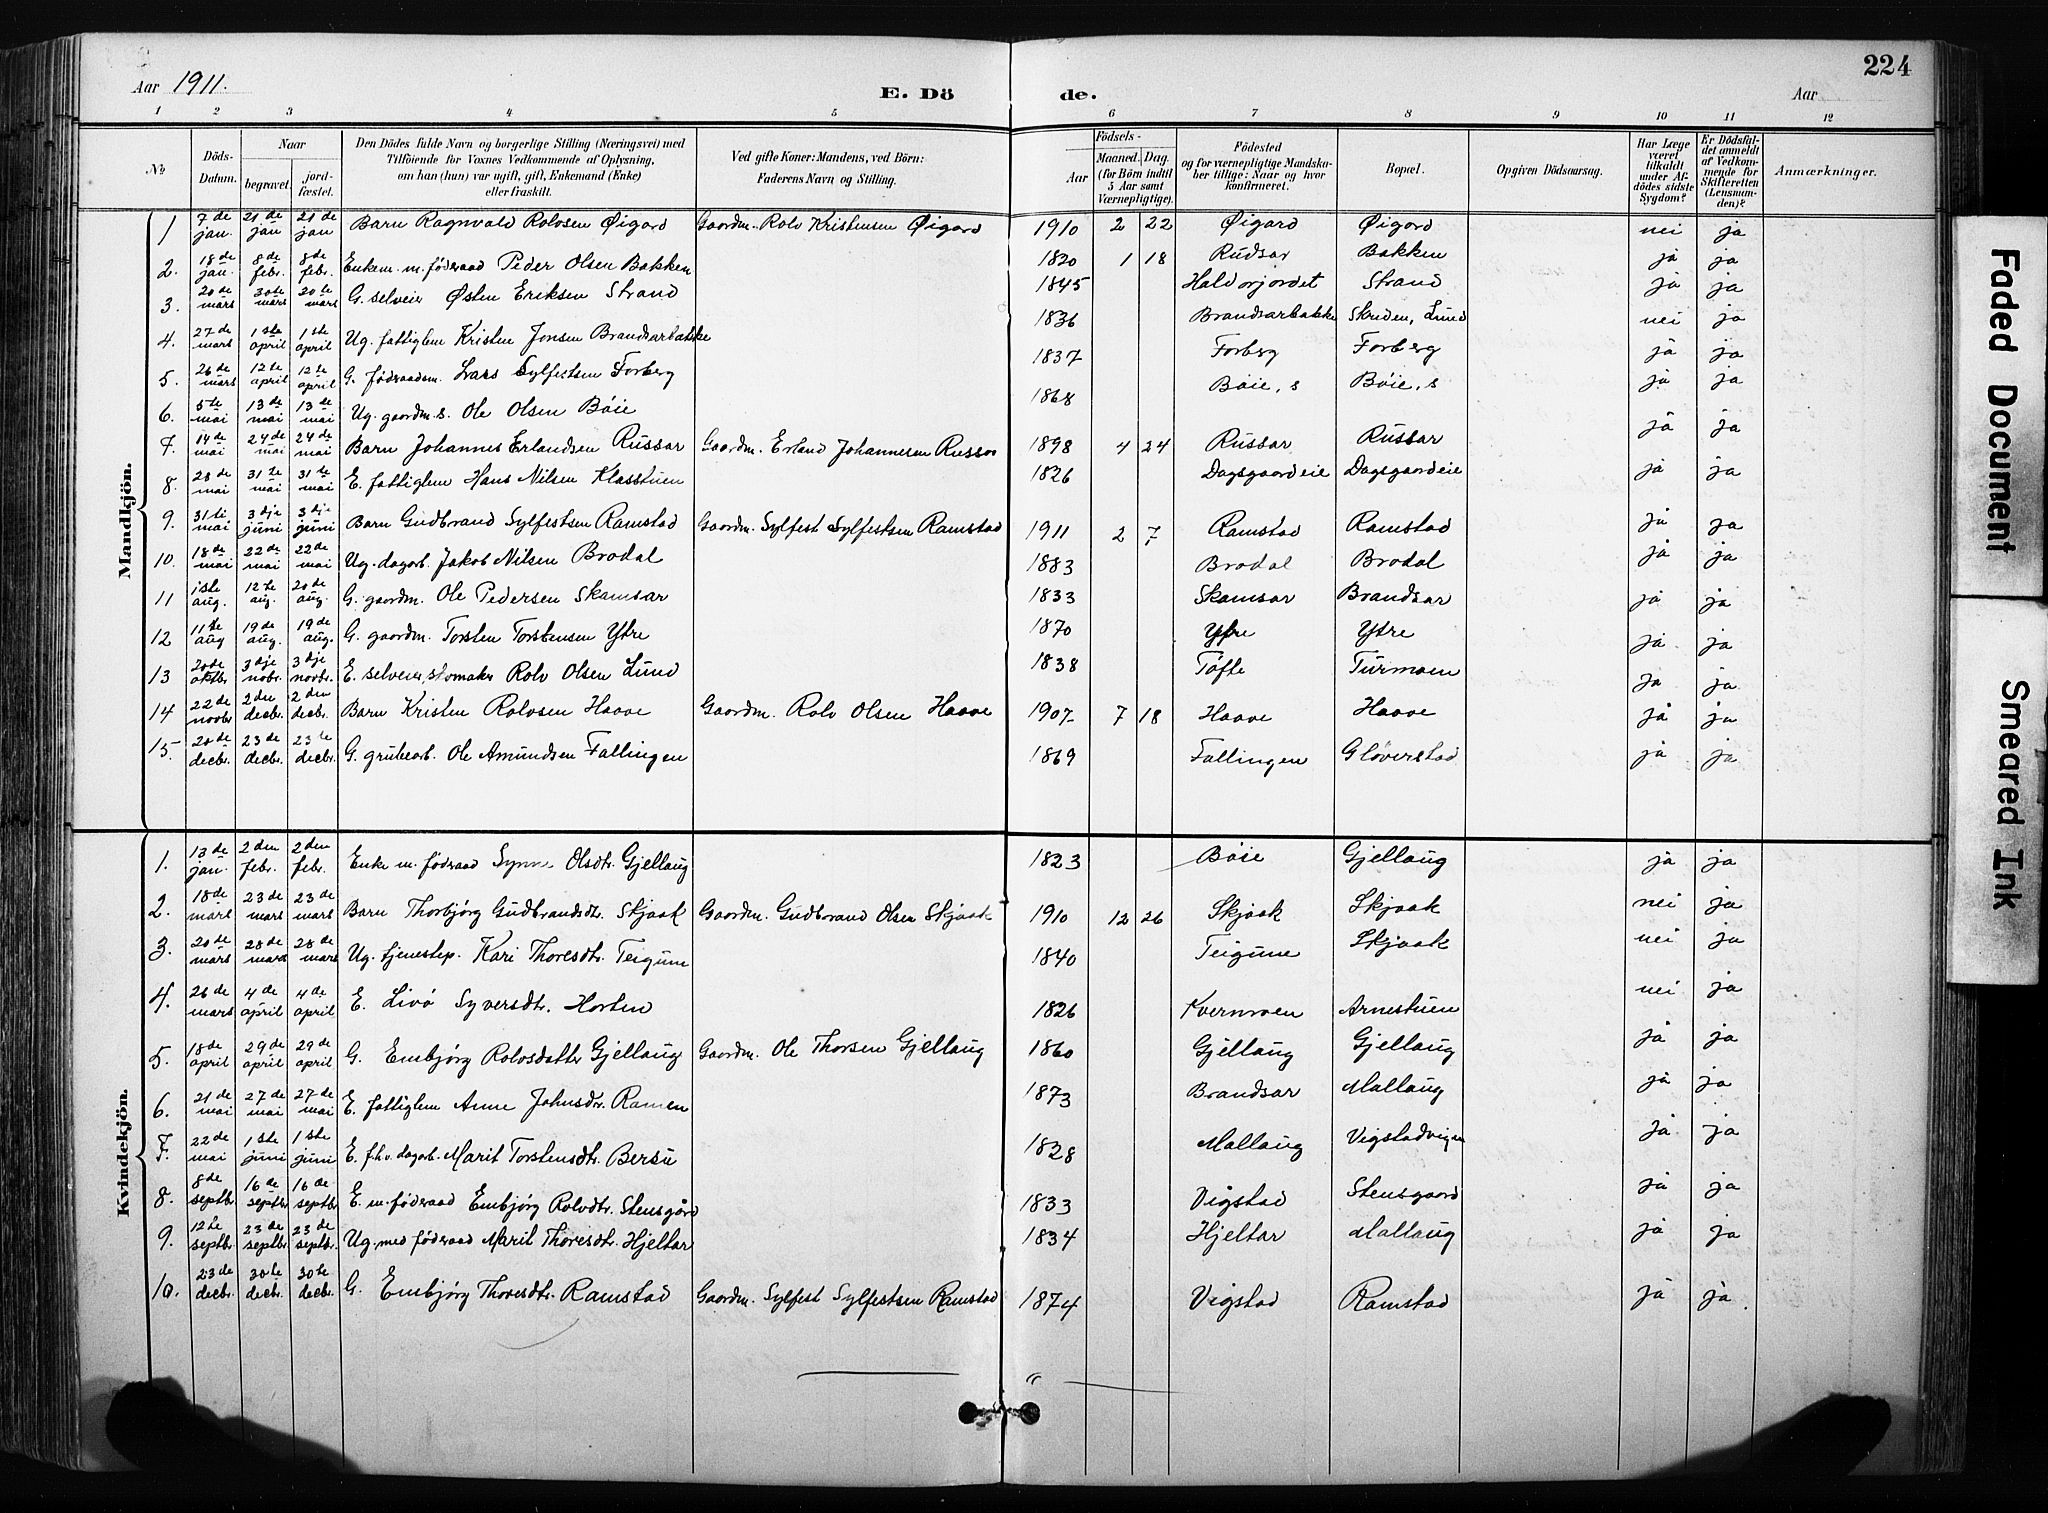 224
Aar 1911.
E. Dö
de.
Aar
1 2 3 4 5 6 7 8 9 10 11 12
No
Döds-Datum.
Naar
begravet.
jord-fæstet.
Den Dödes fulde Navn og borgerlige Stilling (Næringsvei) med
Tilföiende for Voxnes Vedkommende af Oplysning,
om han (hun) var ugift, gift, Enkemand (Enke)
eller fraskilt.
Ved gifte Koner: Mandens, ved Börn:
Faderens Navn og Stilling.
Födsels-
Aar
Maaned. Dag.
(for Börn indtil
5 Aar samt
Værnepligtige).
Födested
og for værnepligtige Mandska-
ber tillige: Naar og hvor
konfirmeret.
Bopæl.
Opgiven Dödsaarsag.
Har Læge
været
tilkaldt
under Af-
dödes sidste
Sygdom?
Er Dödsfal-
det anmeldt
af Vedkom-
mende for
Skifteretten
(Lensman-
den)?
Anmærkninger.
Mandkjön.
1 7de jan. 21de jan 21de jan Barn Ragnvald Rolvsen Øigard Gaardm. Rolv Kristensen Øigard 1910 2 22 Øigard Øigard nei ja
2. 18de jan. 8de febr. 8de febr. Enkem. m. föderaad Peder Olsen Bakken 1820 1 18 Rudsar Bakken ja ja
3. 20de mars 30te mars 20te mars G. selveier Østen Eriksen Strand 1845 Haldorjordet Strand ja ja
4. 27de mars 1ste april 1ste april Ug. fattiglem Kristen Jonsen Brandsarbakke 1836 Brandsarbakke Skriden, Lund nei ja
5. 26de mars 12te april 12te april G. föderaadsm. Lars Sylfestsen Forberg 1837 Forberg Forberg ja ja
6. 5te mai 13de mai 13de mai Ug. gaardm. s. Ole Olsen Böie 1868 Böie, s Böie, s ja ja
7. 14de mai 24de mai 24de mai Barn Johannes Erlandsen Russar Gaardm. Erland Johannesen Russar 1898 4 24 Russar Russar ja ja
8. 23de mai 31te mai 31te mai E. fattiglem Hans Nilsen Klasstuen 1826 Dagsgaardeie Dagsgaardeie ja ja
9. 31te mai 3dje juni 3dje juni Barn Gudbrand Sylfestsen Ramstad Gaardm. Sylfest Sylfestsen Ramstad 1911 2 7 Ramstad Ramstad ja ja
10. 18de mai 22de mai 22de mai Ug. dagarb. Jakob Nilsen Brodal 1883 Brodal Brodal ja ja
11 1ste aug. 12te aug. 20de aug. G. gaardm. Ole Pedersen Skamsar 1833 Skamsar Brandsar ja ja
12 11te aug 19de aug. 19de aug. G. gaardm. Torsten Torstensen Ytre 1870 Ytre Ytre ja ja
13 20de oktbr 3dje nobr. 3dje novbr. E. selveier, skomaker Rolv Olsen Lund 1838 Töfte Turmoen ja ja
14 22de novbr 2den decbr. 2den decbr. Barn Kristen Rolvsen Haave Gaardm. Rolv Olsen Haave 1907 7 18 Haave Haave ja ja
15 20de decbr. 23de decbr. 23de decbr. G. grubearb. Ole Amundsen Fallingen 1869 Fallingen Glöverstad ja ja
Kvindekjön.
1. 13de jan. 2den febr. 2den febr. Enke m. föderaad Olsdtr. Gjellaug 1823 Böie Gjellaug ja ja
2. 18de mars 23de mars 23de mars Barn Thorbjörg Gudbrandsdtr. Skjaak Gaardm. Gudbrand Olsen Skjaak 1910 12 26 Skjaak Skjaak nei ja
3. 20de mars 28de mars 28de mars Ug. tjenestep. Kari Thoresdtr. Teigum 1840 Teigum Skjaak nei ja
4. 26de mars 4de april 4de april E. Livö Syversdtr. Horten 1826 Kvernmoen Arnestuen nei ja
5. 18de april 29de april 29de april G. Embjörg Rolvsdatter Gjellaug Gaardm. Ole Thorsen Gjellaug 1860 Gjellaug Gjellaug ja ja
6. 21de mai 27de mai 27de mai E. fattiglem Anne Johnsdtr. Ramen 1873 Brandsar Mallaug ja ja
7. 22de mai 1ste juni 1ste juni E. fhv. dagarb. Marit Torstensdtr. Bersu 1828 Mallaug Vigstadvigen ja ja
8. 8de septbr 16de septbr 16de septbr E. m. föderaad Embjörg Rolvdtr. Stensgård 1833 Vigstad Stensgaard ja ja
9. 12te septbr. 23de septbr. 23de septbr. Ug. med föderaad Marit Thoresdtr. Hjeltar 1834 Hjeltar Mallaug ja ja
10. 23de decbr. 30te decbr. 30te decbr. G. Embjörg Thoresdtr. Ramstad Gaardm. Sylfest Sylfestsen Ramstad 1874 Vigstad Ramstad ja ja.
Faded Document
Smeared Ink